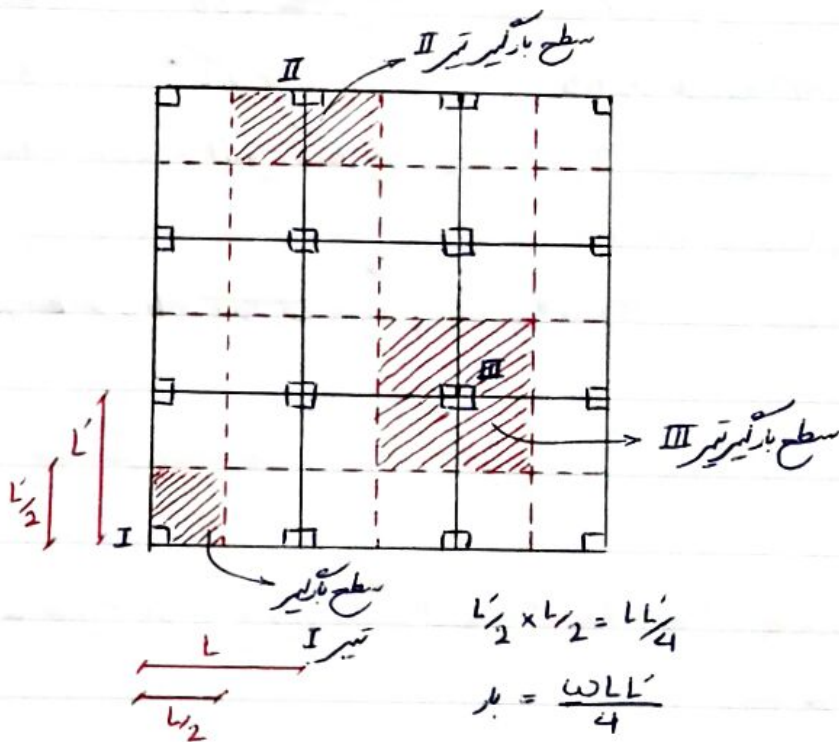 سطح بارگیر تیر II
II
III
سطح بارگیر تیر III
L'
L'/2
I
سطح بارگیر
تیر I
L
L/2
L'/2 × L/2 = LL'/4
بار = ωLL'/4